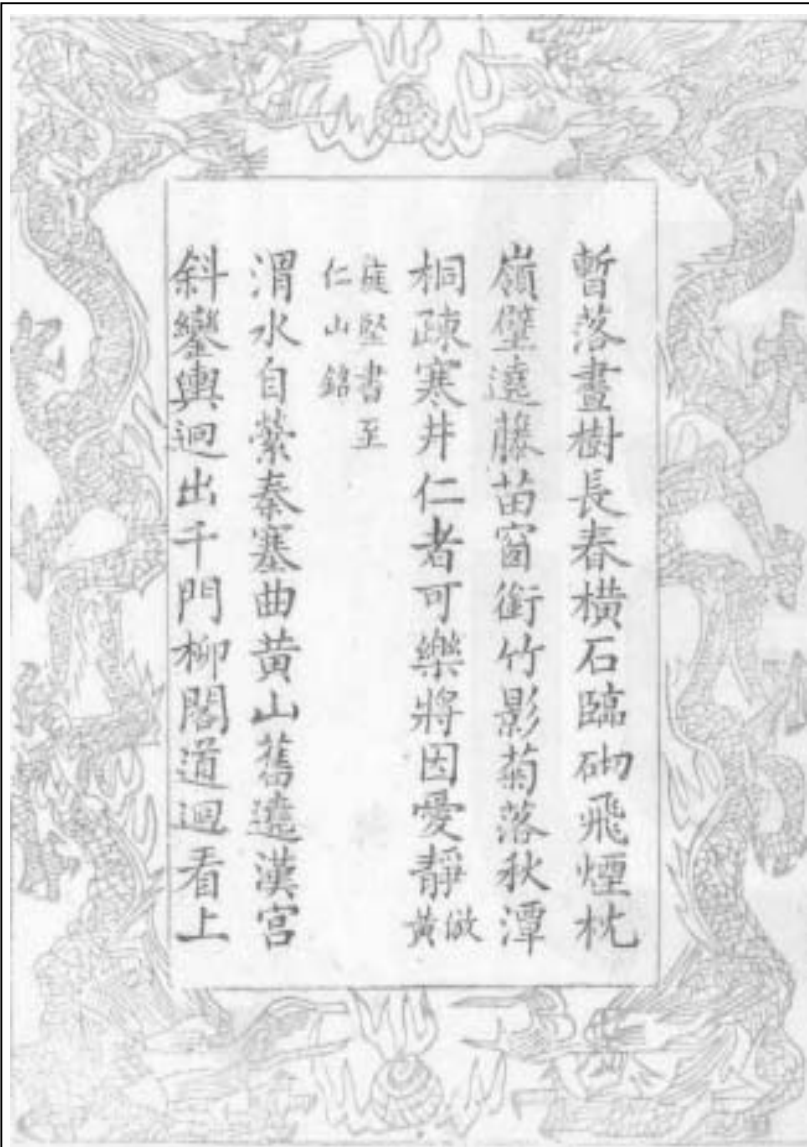 暫落畫樹長春橫石臨砌飛煙枕
嶺壁遶藤苗窗銜竹影菊落秋潭
桐疎寒井仁者可樂將因愛靜倣黃
庭堅書至
仁山銘
渭水自縈秦塞曲黃山舊遶漢宮
斜鑾輿迥出千門柳閣道迴看上